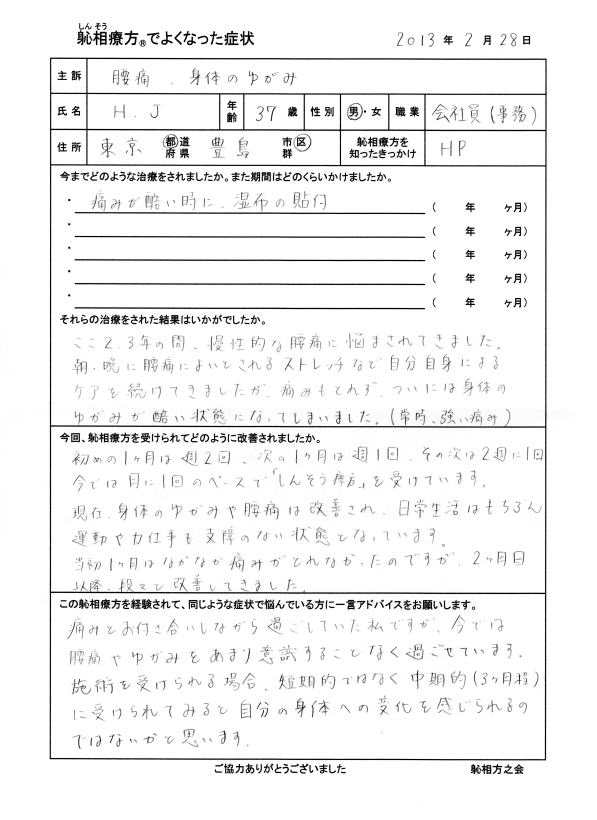 しん そう
恥相療方®でよくなった症状 2013年2月28日
主訴 腰痛、身体のゆがみ
氏名 H.J 年齢 37歳 性別 男・女 職業 会社員(事務)
住所 東京 都道府県 豊島 市区群 恥相療方を知ったきっかけ HP
今までどのような治療をされましたか。また期間はどのくらいかけましたか。
・痛みが酷い時に、湿布の貼付 ( 年 ヶ月)
・ ( 年 ヶ月)
・ ( 年 ヶ月)
・ ( 年 ヶ月)
・ ( 年 ヶ月)
それらの治療をされた結果はいかがでしたか。
ここ2.3年の間、慢性的な腰痛に悩まされてきました。
朝・晩に腰痛によいとされるストレッチなど自分自身による
ケアを続けてきましたが、痛みもとれず、ついには身体の
ゆがみが酷い状態になってしまいました。(常時、強い痛み)
今回、恥相療方を受けられてどのように改善されましたか。
初めの1ヶ月は週2回、次の1ヶ月は週1回、その次は2週に1回
今では月に1回のペースで「しんそう療方」を受けています。
現在、身体のゆがみや腰痛は改善され、日常生活はもちろん
運動や力仕事も支障のない状態となっています。
当初1ヶ月はなかなか痛みがとれなかったのですが、2ヶ月目
以降、段々と改善してきました。
この恥相療方を経験されて、同じような症状で悩んでいる方に一言アドバイスをお願いします。
痛みとお付き合いしながら過ごしていた私ですが、今では
腰痛やゆがみをあまり意識することなく過ごせています。
施術を受けられる場合、短期的ではなく中期的(3ヶ月程)
に受けられてみると自分の身体への変化を感じられるの
ではないかと思います。
ご協力ありがとうございました 恥相方之会